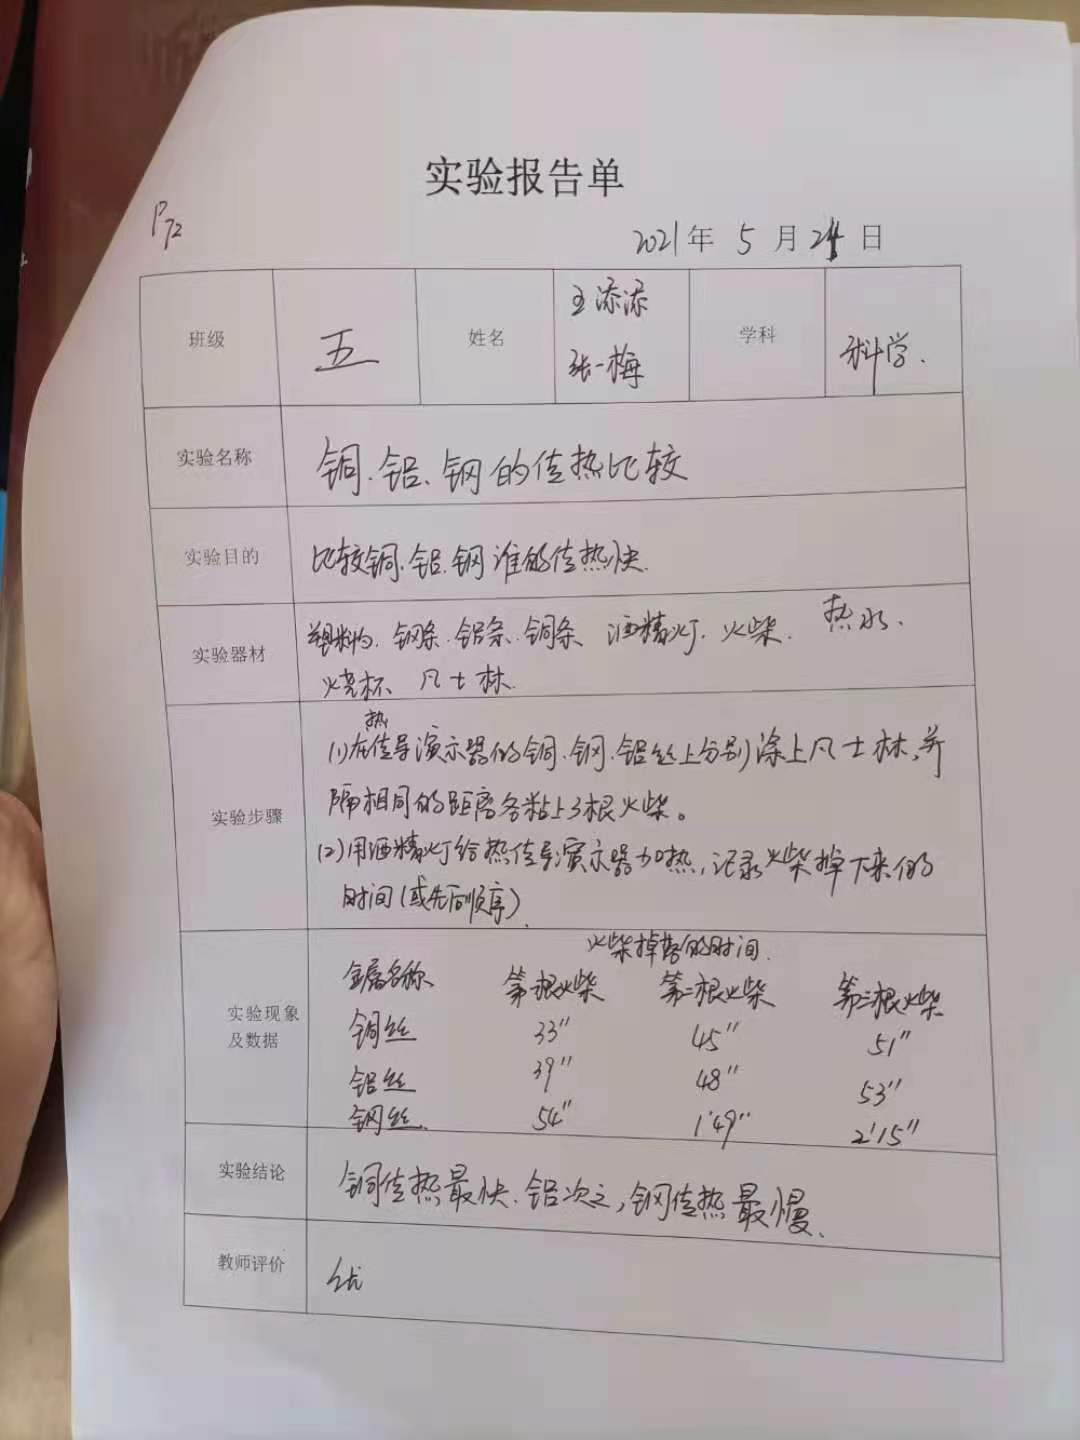 实验报告单
P72
2021年 5 月 24 日
班级 五 姓名 王添添 张一梅 学科 科学.
实验名称 铜.铝.钢的传热比较
实验目的 比较铜.铝.钢谁的传热快.
实验器材 塑料勺.钢条.铝条.铜条 酒精灯.火柴.热水、
烧杯、凡士林.
实验步骤 (1)在热传导演示器的铜.钢.铝丝上分别涂上凡士林,并
隔相同的距离各粘上3根火柴。
(2)用酒精灯给热传导演示器加热,记录火柴掉下来的
时间(或先后顺序).
实验现象及数据 火柴掉落的时间.
金属名称 第一根火柴 第二根火柴 第三根火柴
铜丝 33" 45" 51"
铝丝 39" 48" 53"
钢丝. 54" 1'49" 2'15"
实验结论 铜传热最快.铝次之,钢传热最慢.
教师评价 优